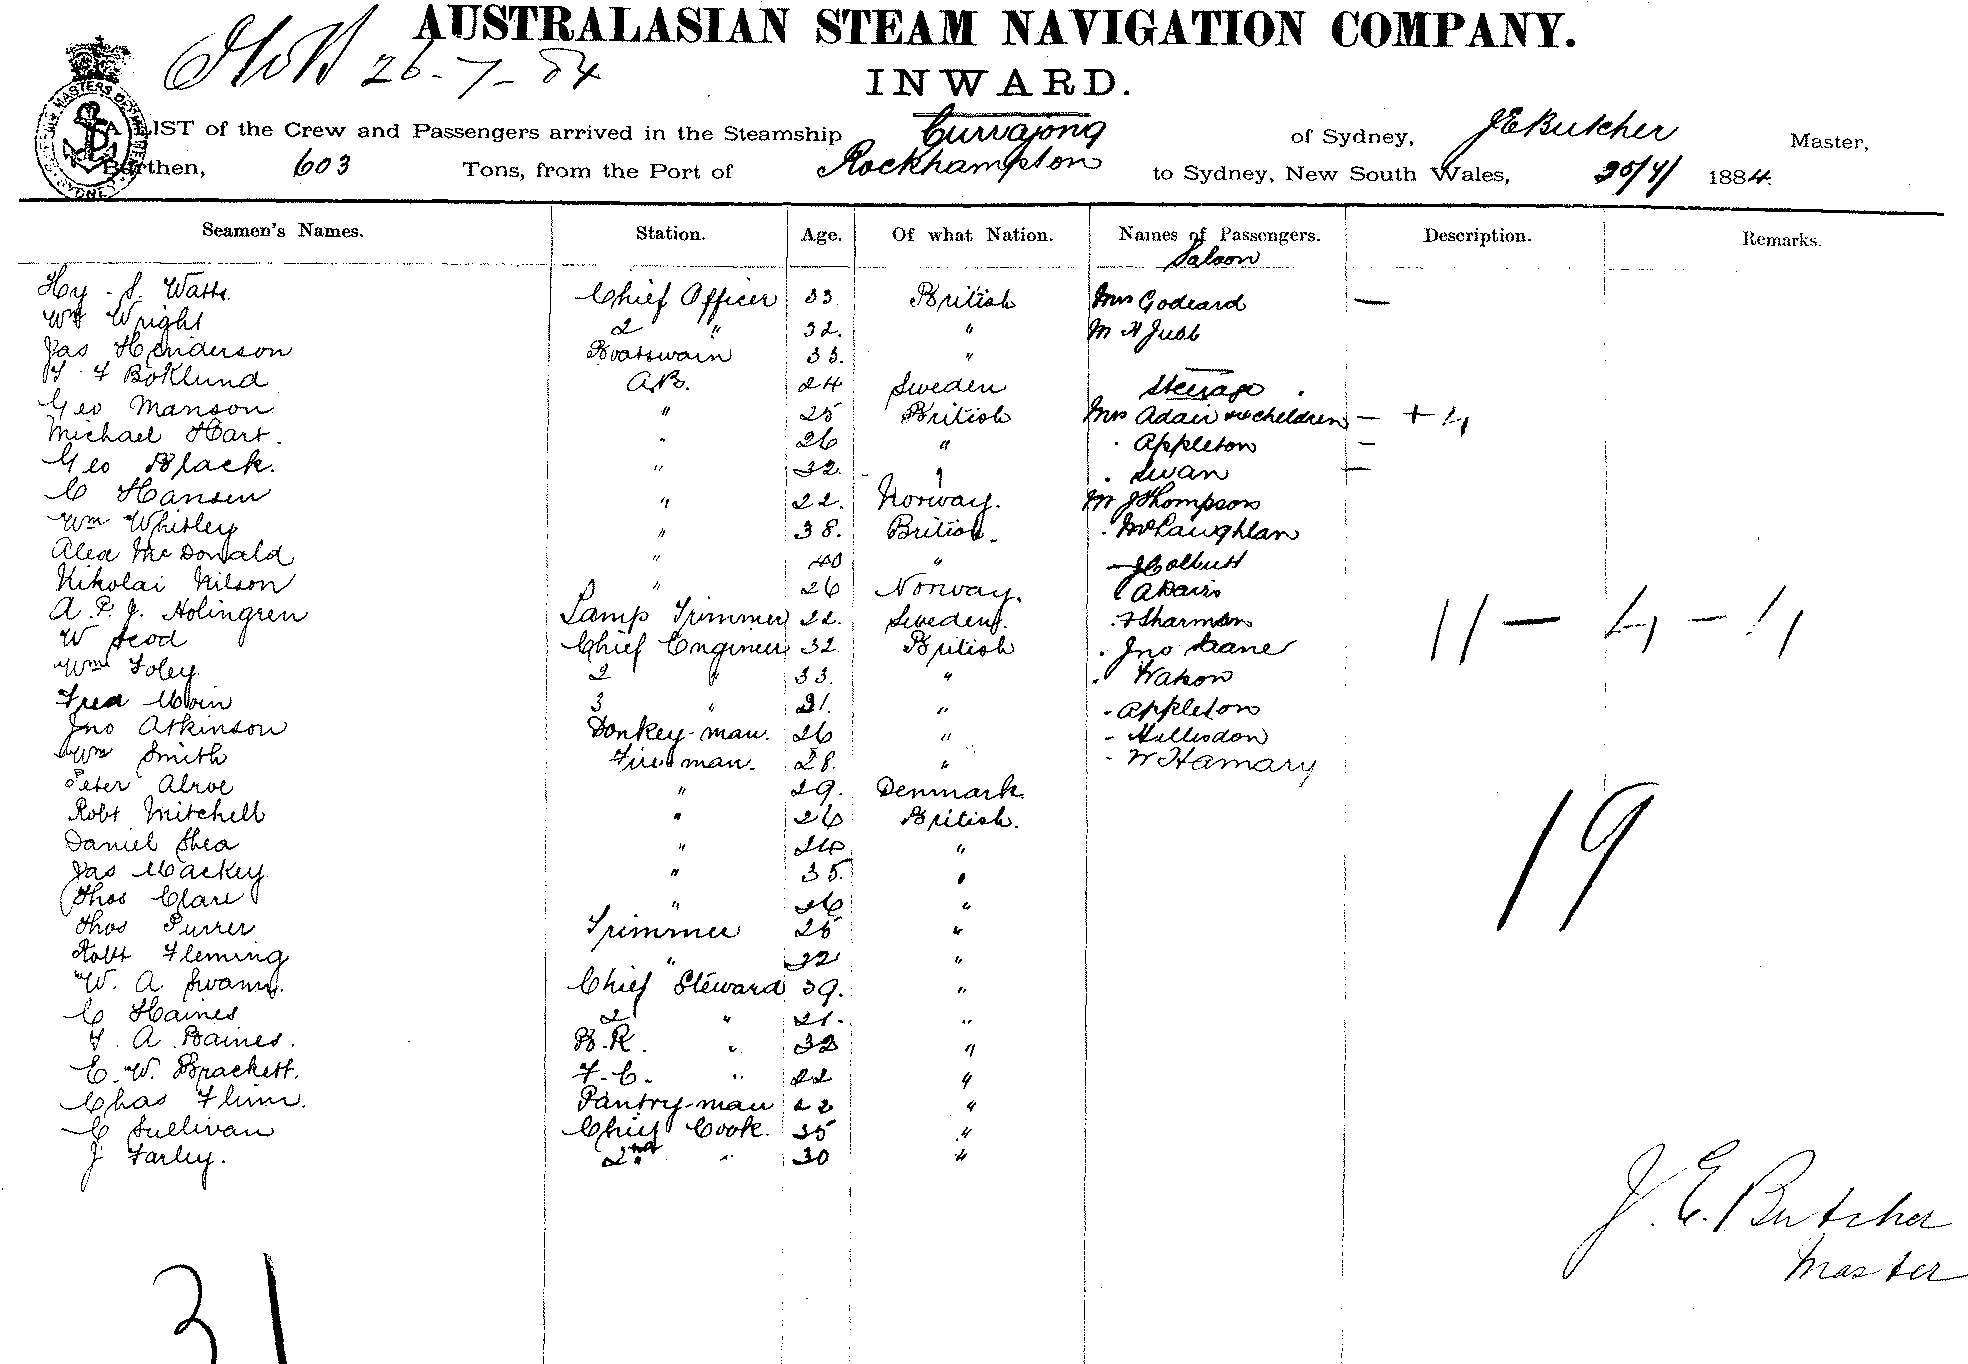 AUSTRALASIAN STEAM NAVIGATION COMPANY.
26-7-84
INWARD.
A LIST of the Crew and Passengers arrived in the Steamship Currajong of Sydney, J E Butcher Master,
Burthen, 603 Tons, from the Port of Rockhampton to Sydney, New South Wales, 1884.
Seamen's Names. Station. Age. Of what Nation. Names of Passengers. Description. Remarks.
Saloon
Hy. S. Watts. Chief Officer 33. British Mrs Goddard —
Wm Wright 2 " 32. " M H Jubb
Jas Henderson Boatswain 33. "
Boklund A.B. 24 Sweden Steerage
Geo Manson " 25 British Mrs Adair & children — + 4
Michael Hart. " 26 " " Appleton —
Geo Black. " 32. " " Swan —
C Hansen " 22. Norway. Mr J Thompson
Wm Whitley " 38. British. " McLaughlan
Alex McDonald " 40 "
Nikolai Nilson " 26 Norway. Adair
A. P. J. Holingren Lamp Trimmer 22. Sweden. " Sharman 11 — 4 — 4
W Scod Chief Engineer 32 British " Jno Deane
Wm Foley 2 " 33. " " Watson
Fred Moin 3 " 21. " " Appleton
Jno Atkinson Donkey-man. 26 " " Hillisdon
Wm Smith Fireman. 28. " " W Hamary
Peter Alroe " 29. Denmark.
Robt Mitchell " 26 British. 19
Daniel Shea " 24 "
Jas Mackey " 35. "
Thos Clare " 26 "
Thos Purrer Trimmer 25 "
Robt Fleming " 22 "
W. A Swann. Chief Steward 39. "
C Haines 2 " 21. "
A. Baines. B.R. " 32 "
E. W. Brackett. F.C. " 22 "
Chas Flinn. Pantry-man 22 "
C Sullivan Chief Cook. 35 "
J Farley. 2nd " 30 "
J. E. Butcher
Master
31